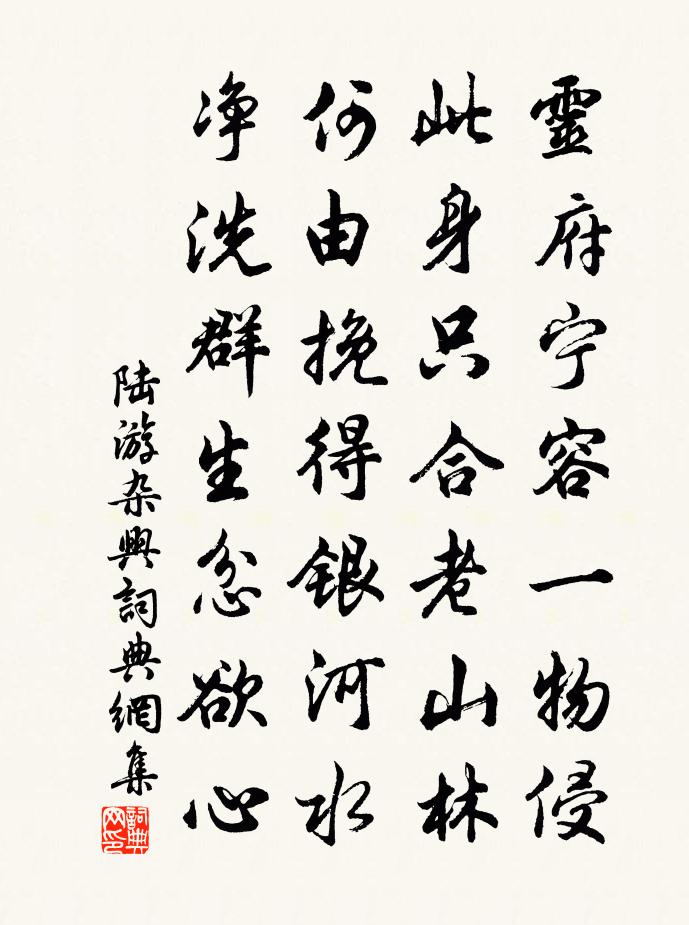 靈府宁容一物侵
此身只合老山林
何由挽得銀河水
净洗群生忿欲心
陆游杂興詞典網集
詞典网印